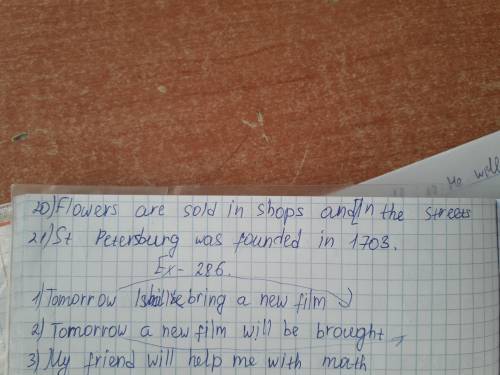 20) Flowers are sold in shops and in the streets
21) St Petersburg was founded in 1703.
Ex- 286.
1) Tomorrow I bring a new film
2) Tomorrow a new film will be brought
3) My friend will help me with math